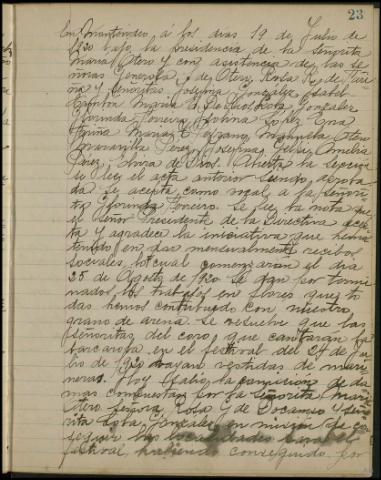 23
En Montevideo, á los dias 19 de Julio de
1920 bajo la presidencia de la señorita
Maria Otero y con asistencia de las se
ñoras Generosa de Otero, Rosa
y señoritas Josefina Gonzalez Isabel
Maria E. Gonzalez
Florinda Ferreiro Lopez Ena
Maria Manuela Otero
Perez Josefina Amelia
Perez, Elvira de Rios. Abierta la sesión
se leey el acta anterior siendo aproba
da. Se acepta como vocal a la señori
ta Florinda Ferreiro. Se leey la nota que
el Señor Presidente de la Directiva acep
ta y agradece la iniciativa que hemos
tenido en dar mensualmente recibos
sociales, lo cual comenzaran el dia
25 de Agosto de 1920. Se dan por termi
nados los trabajos en flores que to
das hemos contribuido con nuestro
grano de arena. Se resuelve que las
señoritas del coro que cantaran la
barcarola en el festival del 24 de Ju
lio de 1920 vayan vestidas de mari
neras. Hoy salio la comisión de da
mas compuesta por la señorita Maria
Otero, señora Rosa de Docampo y seño
rita Lola Gonzalez en misión de co
segir las localidades para el
festival habiendo conseguido por